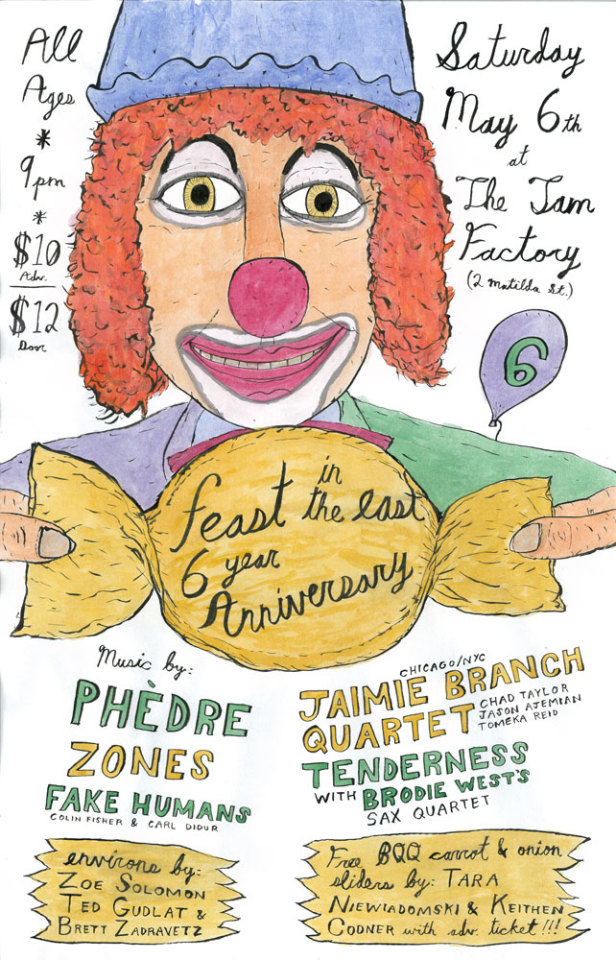 All
Ages
*
9pm
*
$10
Adv.
$12
Door
Saturday
May 6th
at
The Jam
Factory
(2 Matilda St.)
6
feast in
the east
6 year
Anniversary
Music by:
PHÈDRE
ZONES
FAKE HUMANS
COLIN FISHER & CARL DIDUR
CHICAGO/NYC
JAIMIE BRANCH
QUARTET
CHAD TAYLOR
JASON AJEMIAN
TOMEKA REID
TENDERNESS
WITH BRODIE WEST'S
SAX QUARTET
environs by:
ZOE SOLOMON
TED GUDLAT &
BRETT ZADRAVETZ
Free BQQ carrot & onion
sliders by: TARA
NIEWIADOMSKI & KEITHEN
CODNER with adv. ticket!!!